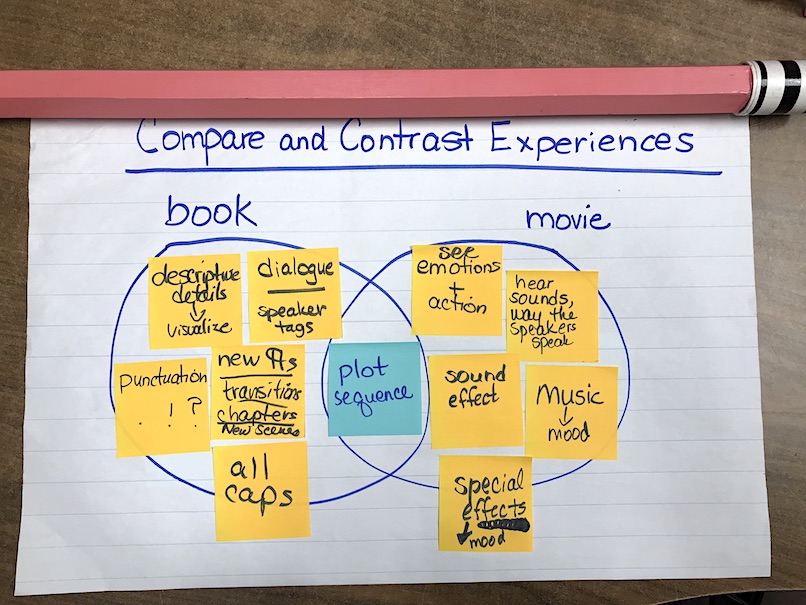 Compare and Contrast Experiences
book
movie
descriptive
details
↓
visualize
dialogue
speaker
tags
punctuation
. ! ?
new ¶s
transitions
chapters
New scenes
all
caps
plot
sequence
see
emotions
+
action
hear
sounds,
way the
speakers
speak
sound
effect
Music
↓
mood
special
effects
↓
mood